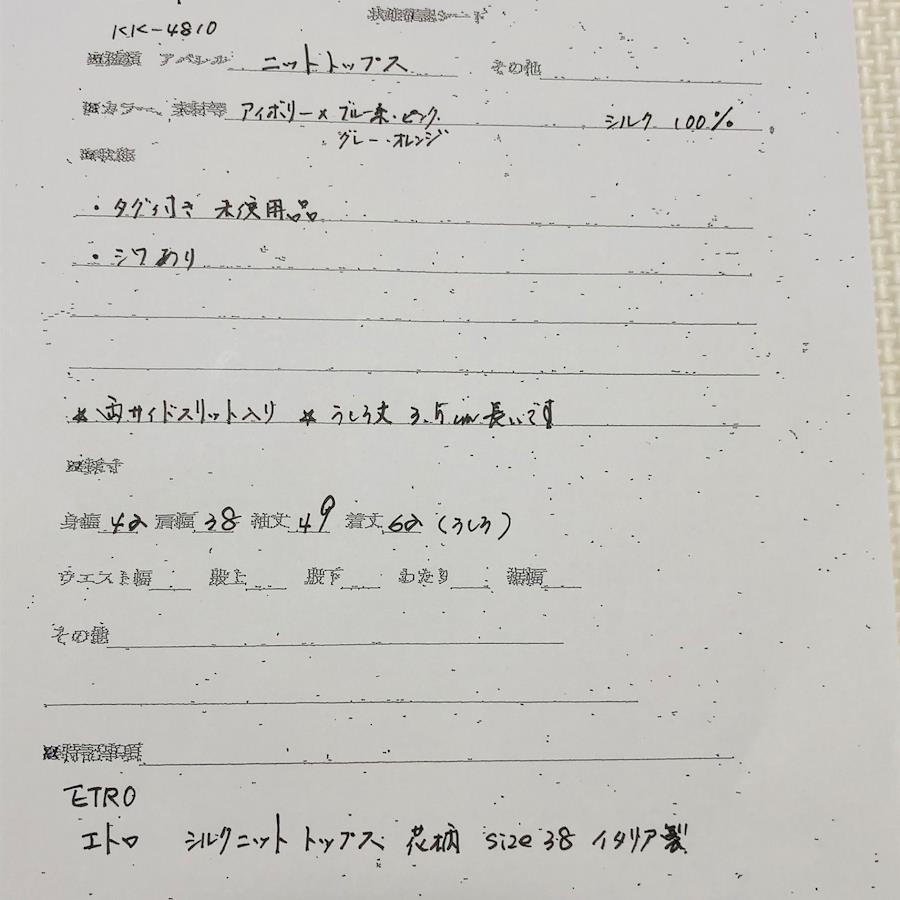 状態確認シート
KK-4810
アパレル ニットトップス その他
■カラー、素材等 アイボリー×ブルー系・ピンク シルク 100%
グレー・オレンジ
■状態
・タグ付き 未使用品
・シワあり
＊両サイドスリット入り ＊うしろ丈 3.5cm長いです
■採寸
身幅 42 肩幅 38 袖丈 49 着丈 62 (うしろ)
ウエスト幅 股上 股下 わたり 裾幅
その他
■特記事項
ETRO
エトロ シルクニット トップス 花柄 size 38 イタリア製